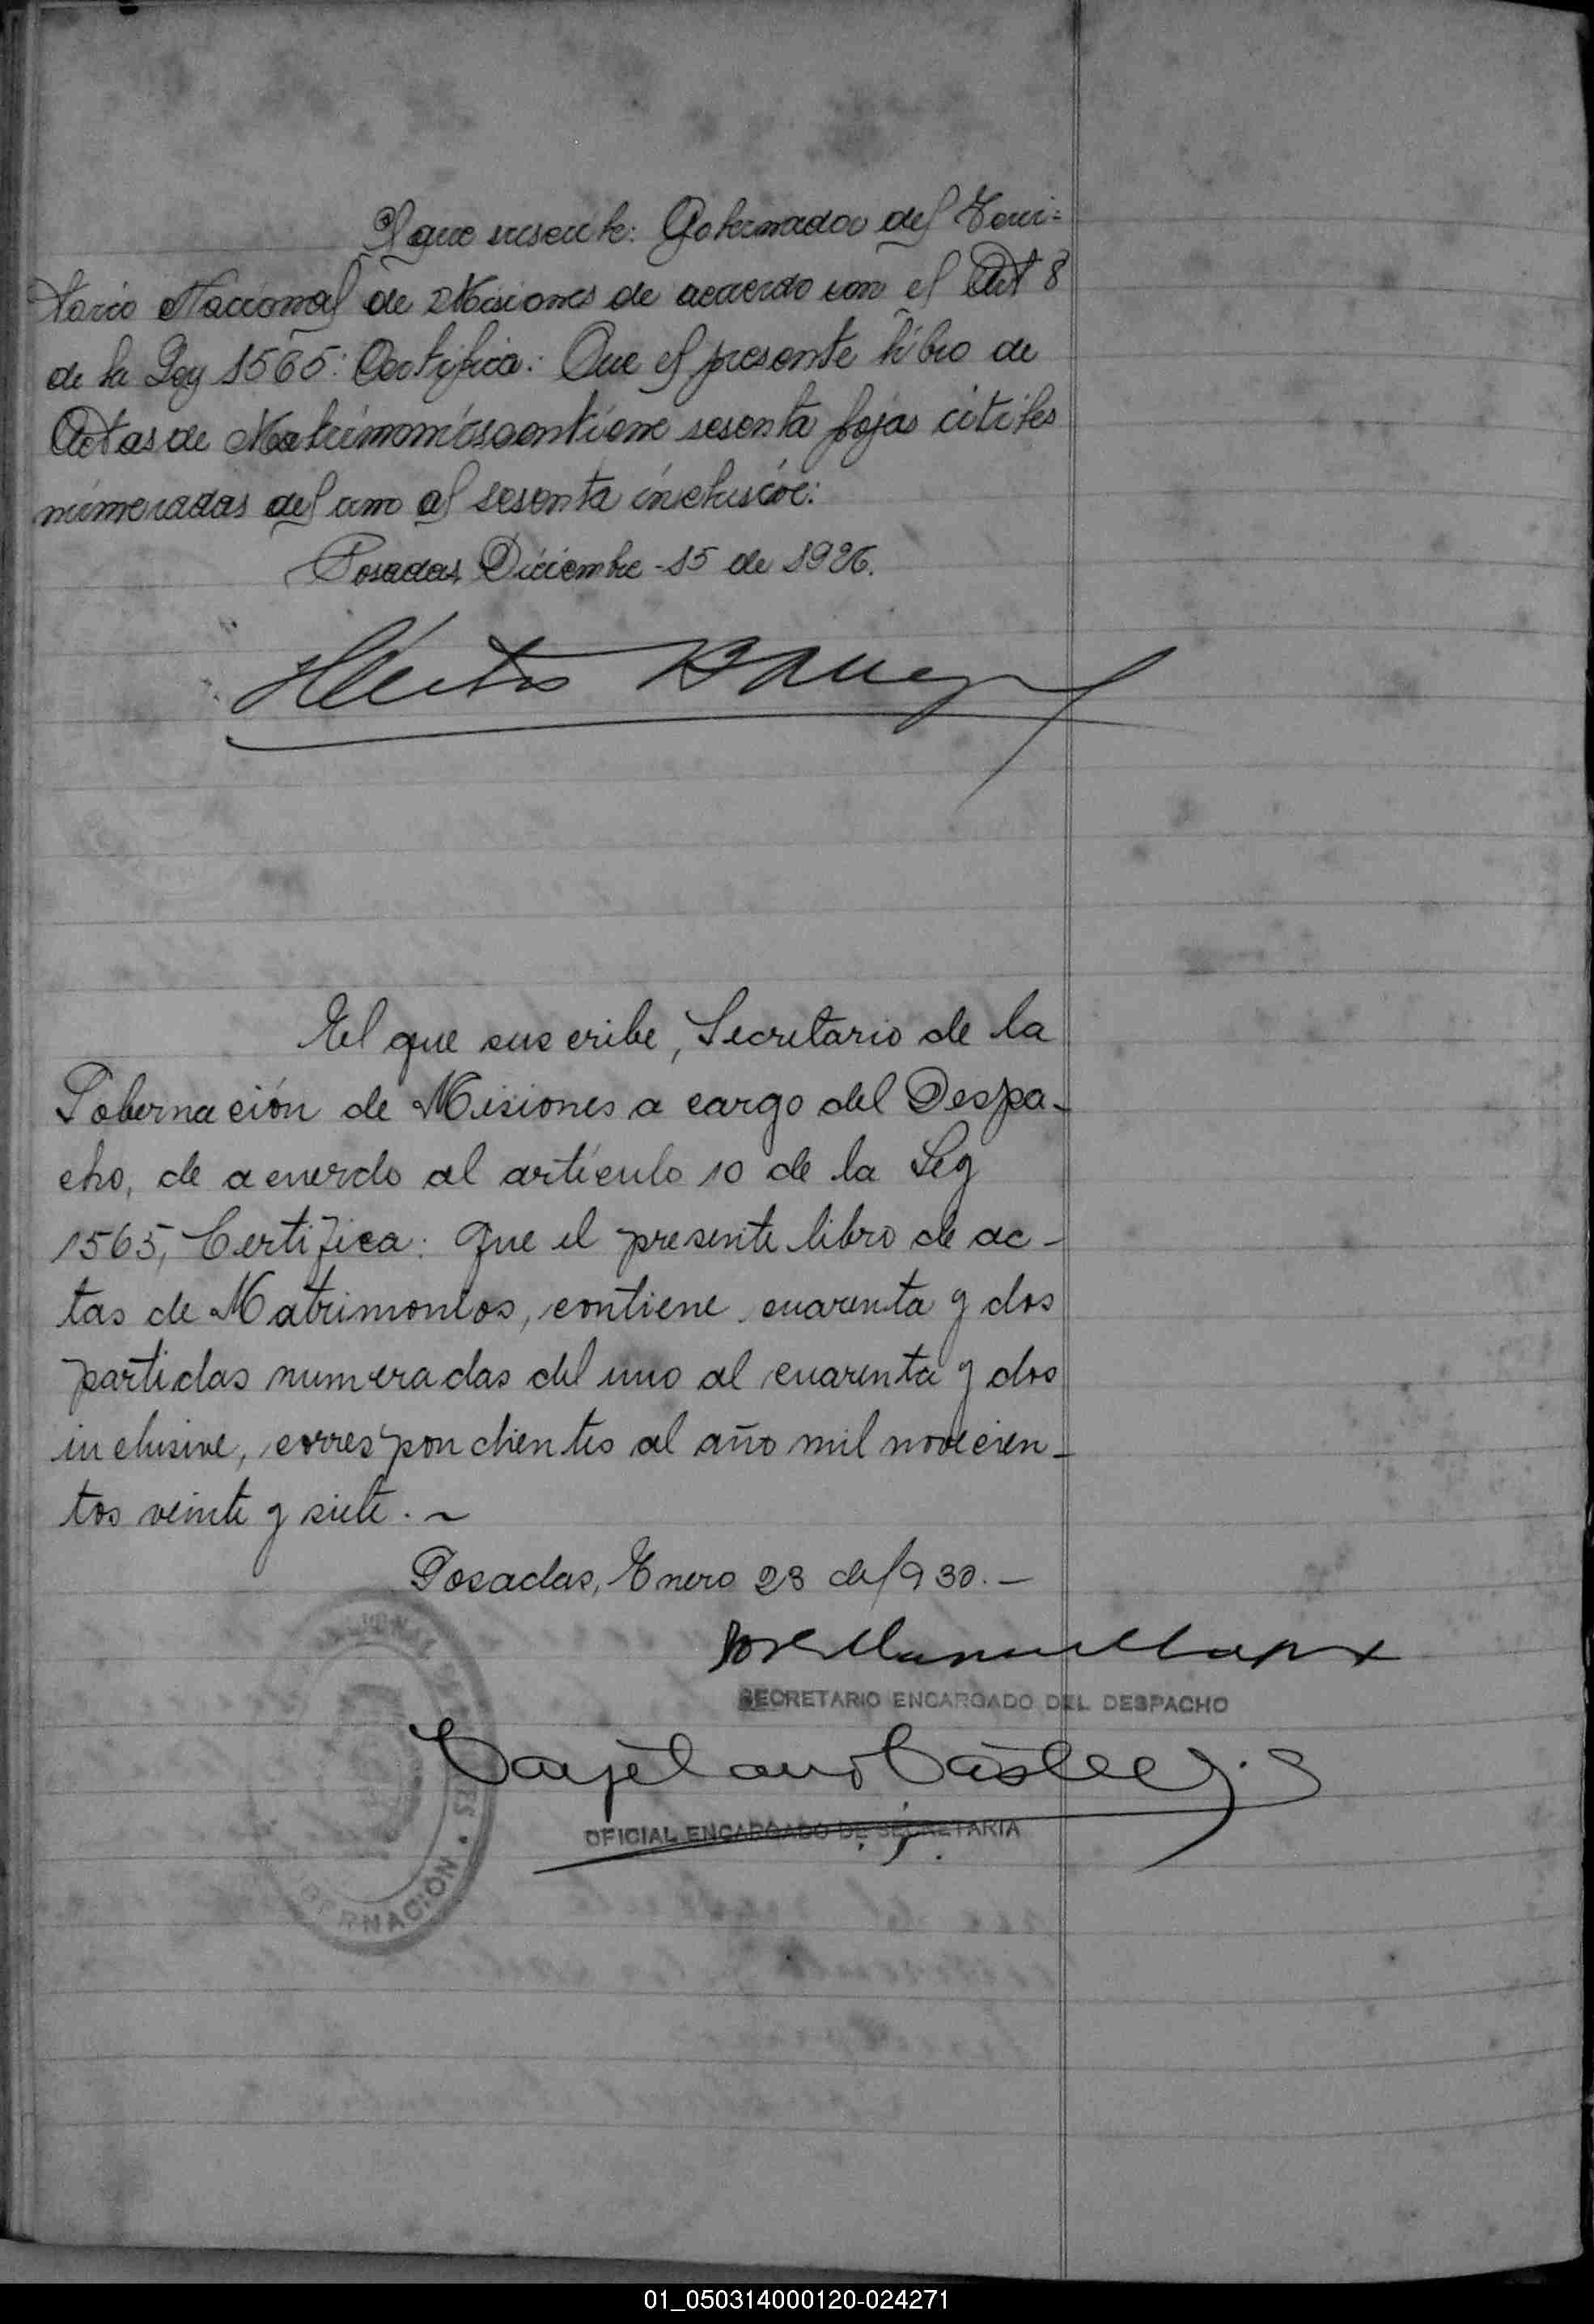 El que suscribe: Gobernador del Terri=
torio Nacional de Misiones de acuerdo con el Art 8
de la Ley 1565: Certifica: Que el presente libro de
Actas de Matrimonios contiene sesenta fojas útiles
numeradas del uno al sesenta inclusive:
Posadas, Diciembre - 15 de 1926.
Héctor Barreyro
El que suscribe, Secretario de la
Gobernación de Misiones a cargo del Despa-
cho, de acuerdo al artículo 10 de la Ley
1565, Certifica: Que el presente libro de ac-
tas de Matrimonios, contiene cuarenta y dos
partidas numeradas del uno al cuarenta y dos
inclusive, correspondientes al año mil novecien-
tos veinte y siete. ~
Posadas, Enero 23 de 1930.-
José Manuel
SECRETARIO ENCARGADO DEL DESPACHO
Cayetano Castelli
OFICIAL ENCARGADO DE SECRETARIA
GOBERNACION
01_050314000120-024271